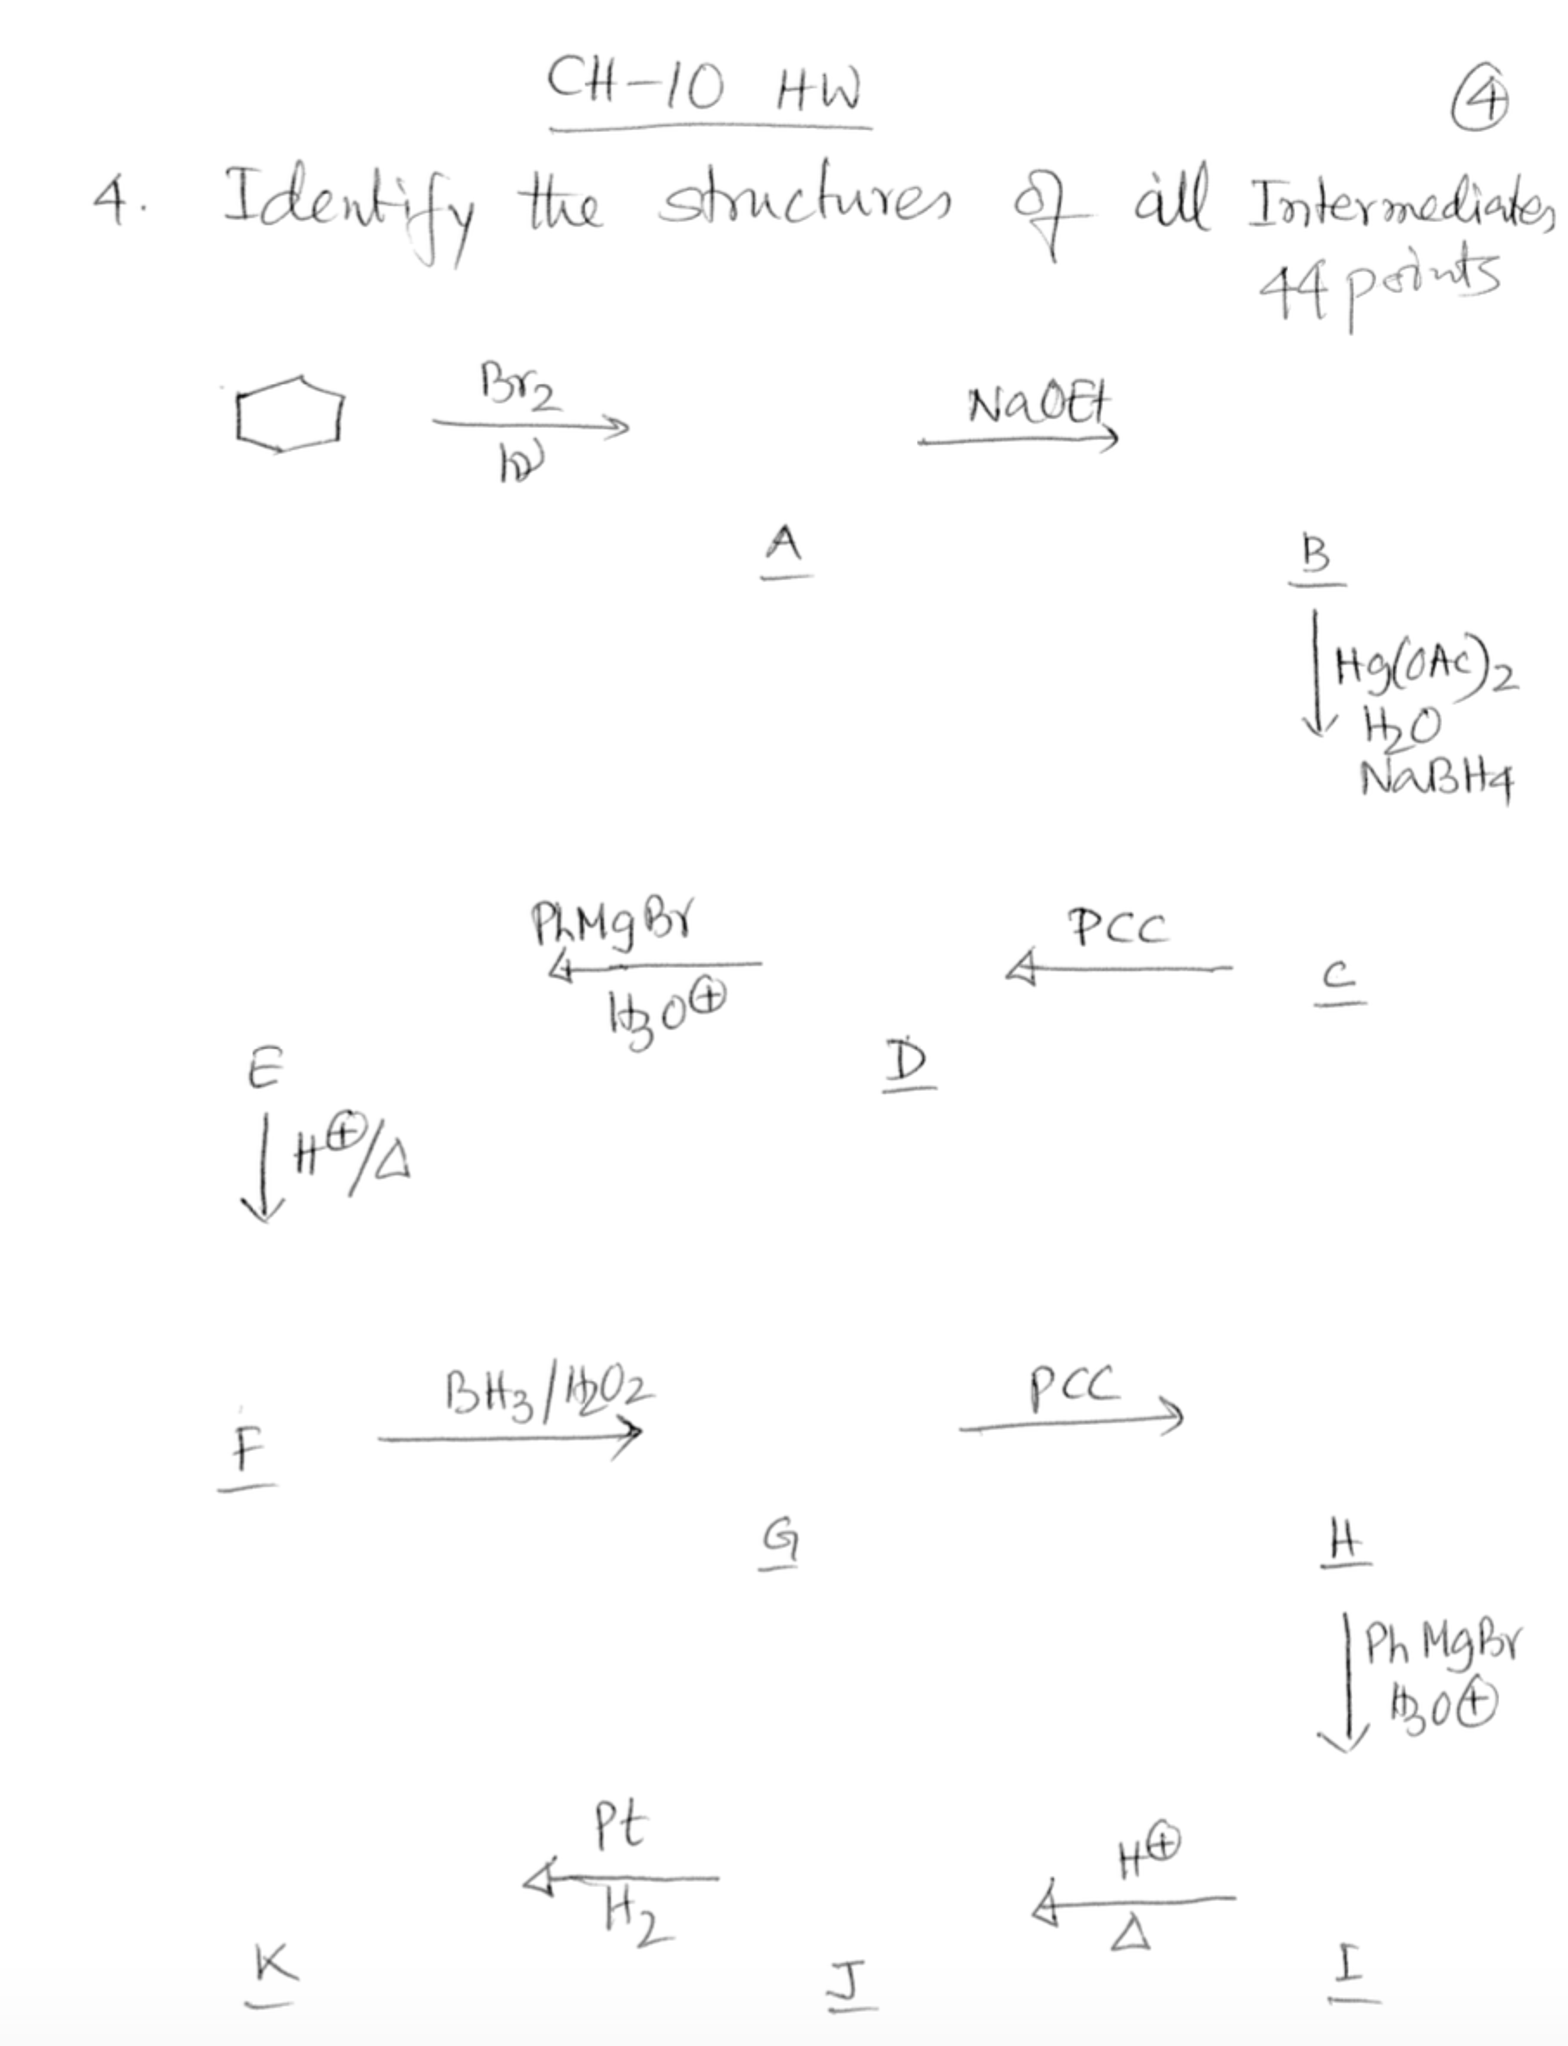 CH-10 HW
④
4. Identify the structures of all Intermediates
44 points
Br2
hν
NaOEt
A
B
Hg(OAc)2
H2O
NaBH4
PhMgBr
H3O⊕
PCC
C
D
E
H⊕/Δ
F
BH3/H2O2
PCC
G
H
PhMgBr
H3O⊕
Pt
H2
H⊕
Δ
K
J
I